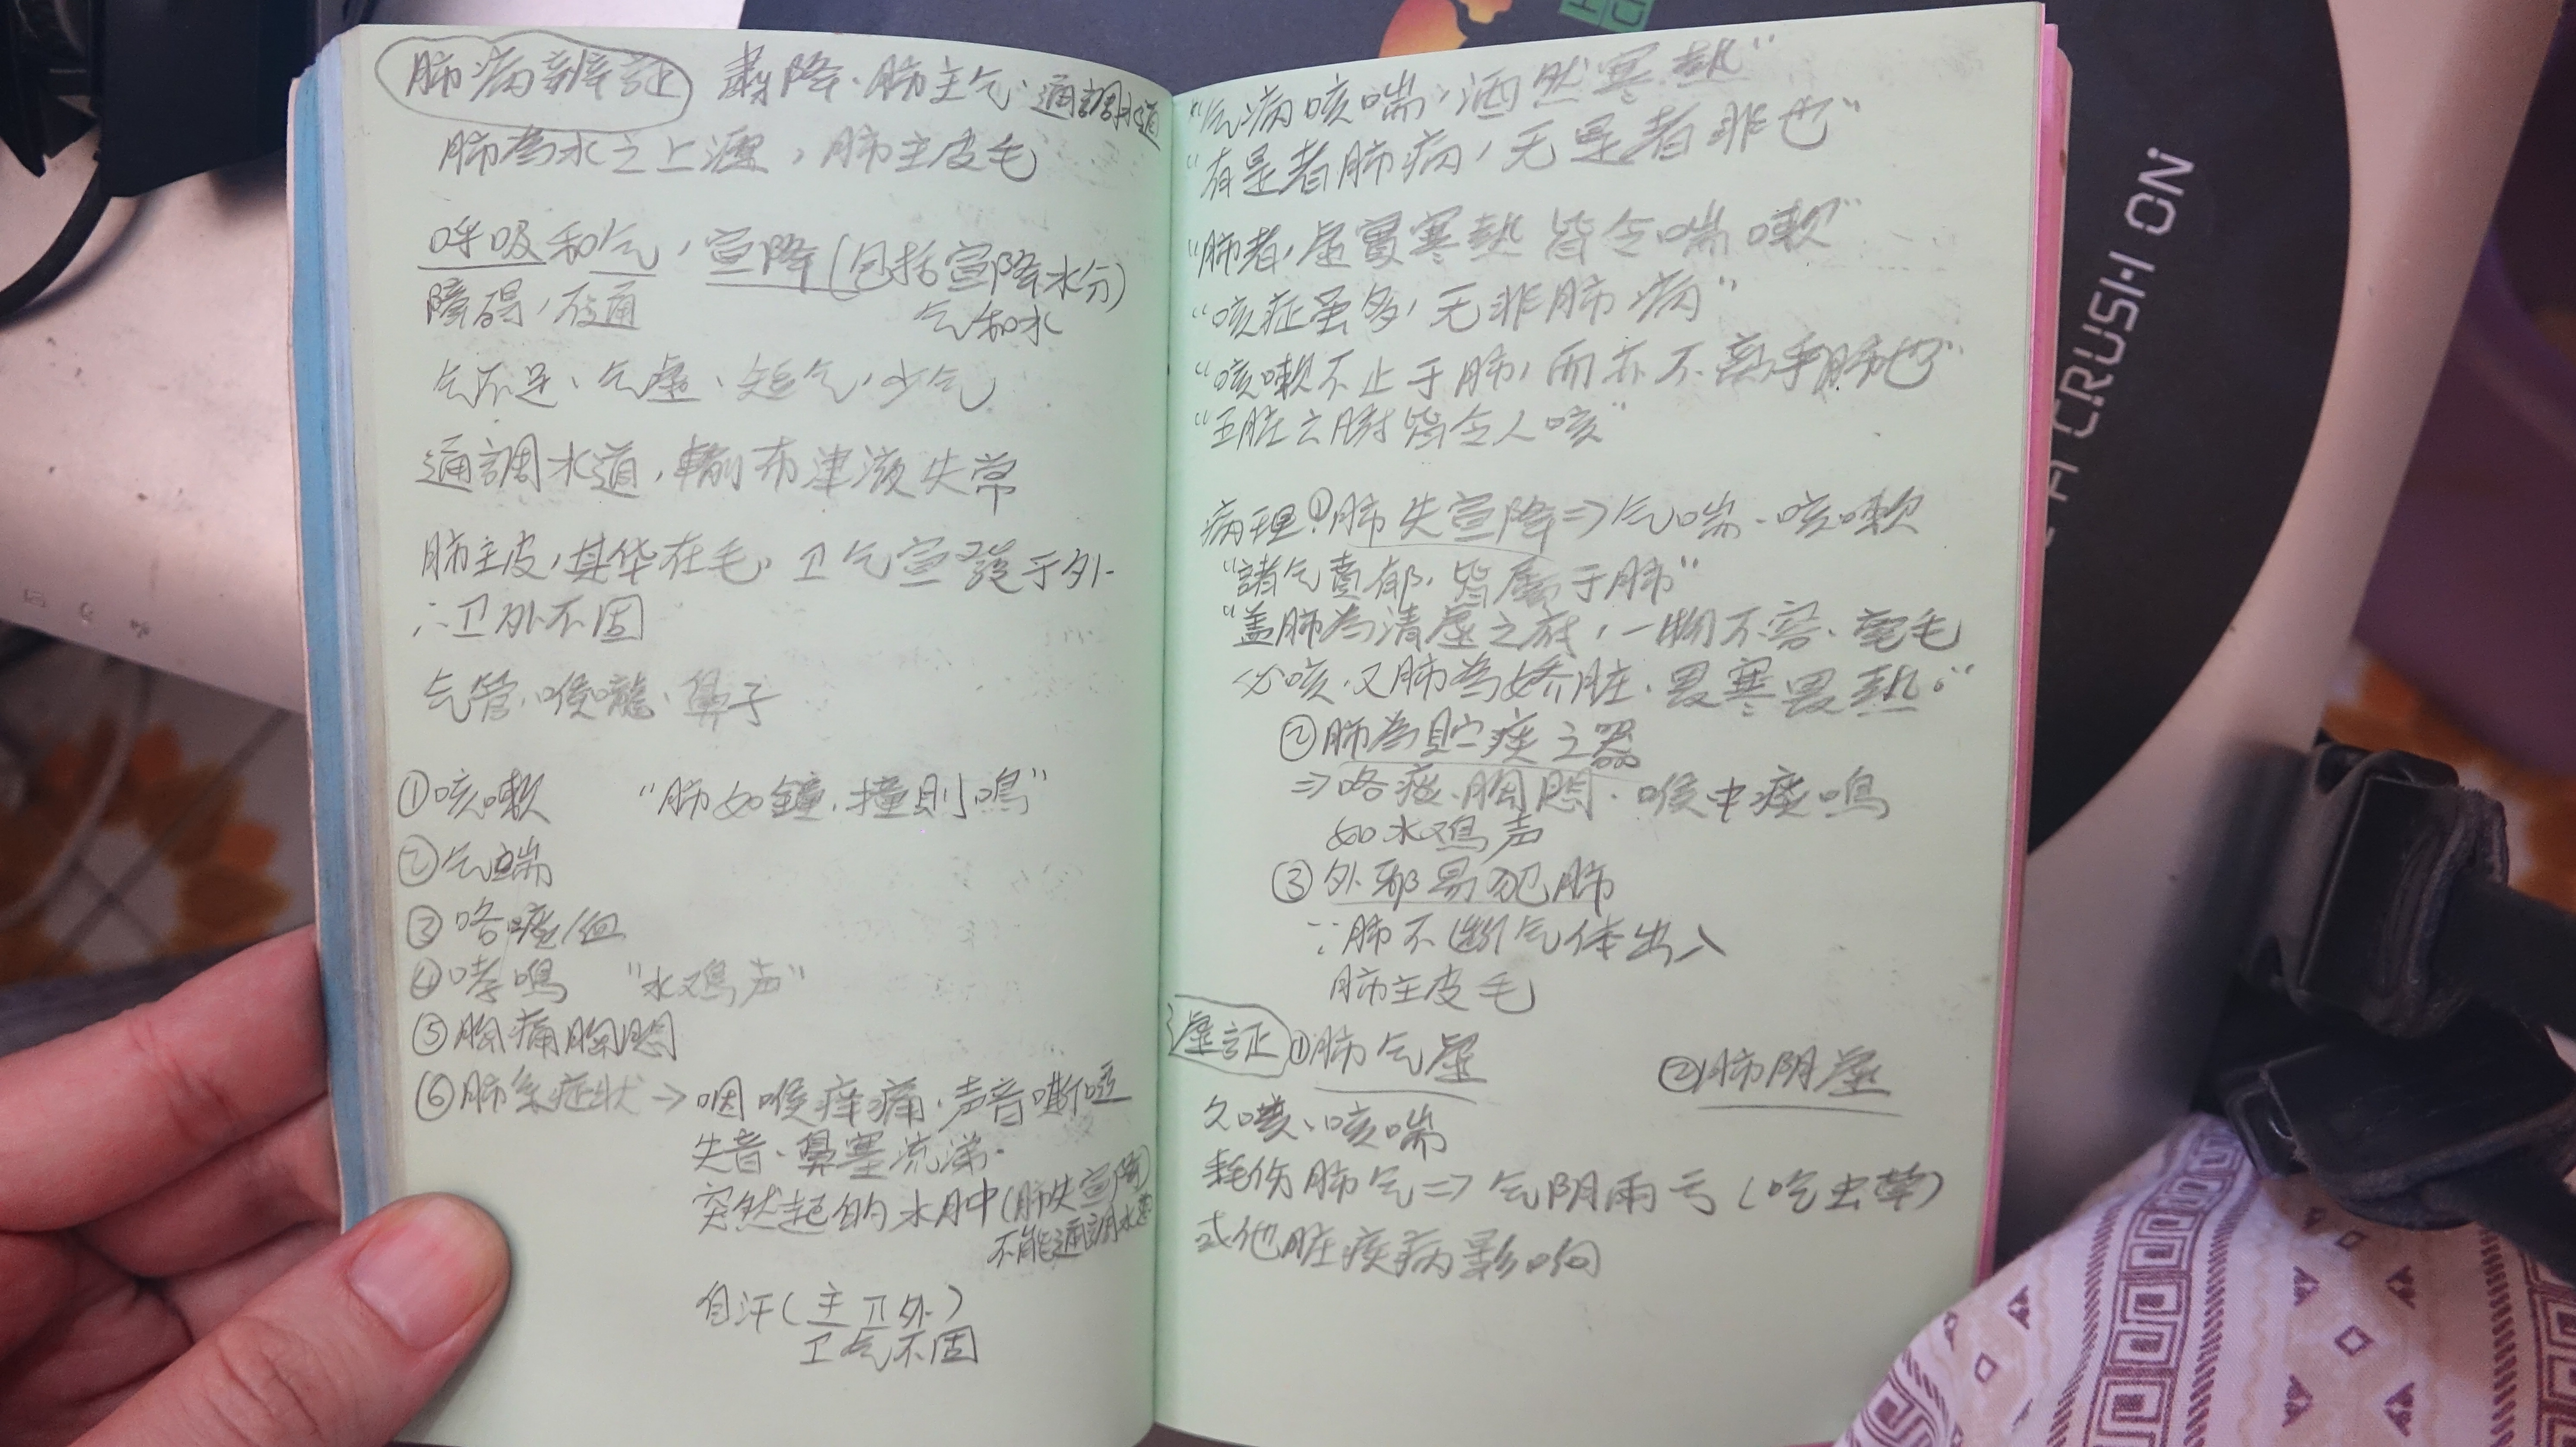 肺病辨証 肃降、肺主气、通調水道
肺為水之上源，肺主皮毛
呼吸和气，宣降(包括宣降水分)
障碍，不通 气和水
气不足、气虛、短气，少气
通調水道，輸布津液失常
肺主皮，其华在毛，卫气宣發于外
∴卫外不固
气管、喉嚨、鼻子
①咳嗽 “肺如鐘，撞則鳴”
②气喘
③咯痰/血
④哮鳴 “水鸡声”
⑤胸痛胸悶
⑥肺系症狀→咽喉痒痛、声音嘶啞
失音、鼻塞流涕、
突然起的水肿(肺失宣降)
不能通調水道
自汗(主卫外)
卫气不固
“气病咳喘，洒然寒熱”
“有是者肺病，无是者非也”
“肺者，虛實寒熱皆令喘嗽”
“咳症虽多，无非肺病”
“咳嗽不止于肺，而亦不离乎肺也”
“五脏六腑皆令人咳”
病理：①肺失宣降⇒气喘、咳嗽
“諸气賁郁，皆屬于肺”
“盖肺為清虛之府，一物不容、毫毛
必咳，又肺為娇脏，畏寒畏熱。”
②肺為貯痰之器
⇒咯痰、胸悶、喉中痰鳴
如水鸡声
③外邪易犯肺
∵肺不斷气体出入
肺主皮毛
虛証 ①肺气虛 ②肺阴虛
久嗽、咳喘
耗伤肺气⇒气阴兩亏(吃虫草)
或他脏疾病影响
CRUSH ON